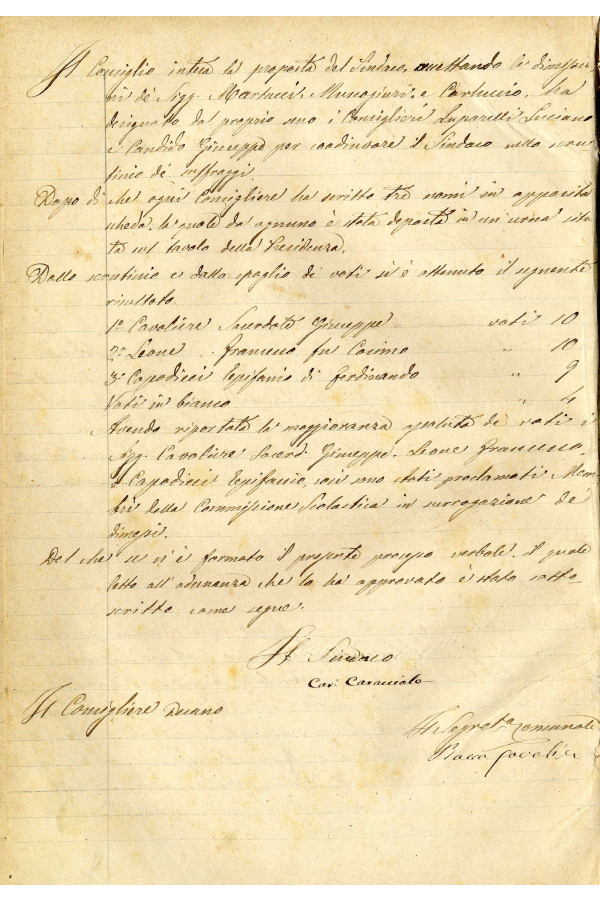 Il Consiglio intesa la proposta del Sindaco, accettando le dimessio-
ni de' Sigg. Martucci, Musogiuri, e Carluccio, ha
designato dal proprio seno i Consiglieri Luparelli Luciano
e Candido Giuseppe per coadiuvare il Sindaco nello scru-
tinio de' suffraggi.
Dopo di che ogni Consigliere ha scritto tre nomi in apposita
scheda, la quale da ognuno è stata deposta in un'urna situa-
ta sul tavolo della Presidenza.
Dallo scrutinio e dallo spoglio di voti si è ottenuto il seguente
risultato
1º Cavaliere Sacerdote Giuseppe voti 10
2º Leone Francesco fu Cosimo " 10
3º Capodieci Epifanio di Ferdinando " 9
Voti in bianco " 4
Avendo riportata la maggioranza assoluta de' voti i
Sigg. Cavaliere Sacerd. Giuseppe, Leone Francesco,
e Capodieci Epifanio, così sono stati proclamati Mem-
bri della Commissione Scolastica in surrogazione de'
dimessi.
Del che se n'è formato il presente processo verbale, il quale
letto all'adunanza che lo ha approvato è stato sotto-
scritto come segue.
Il Sindaco
Cav. Caracciolo
Il Consigliere Decano
Il Segret.º Comunale
Rocco Cavaliere